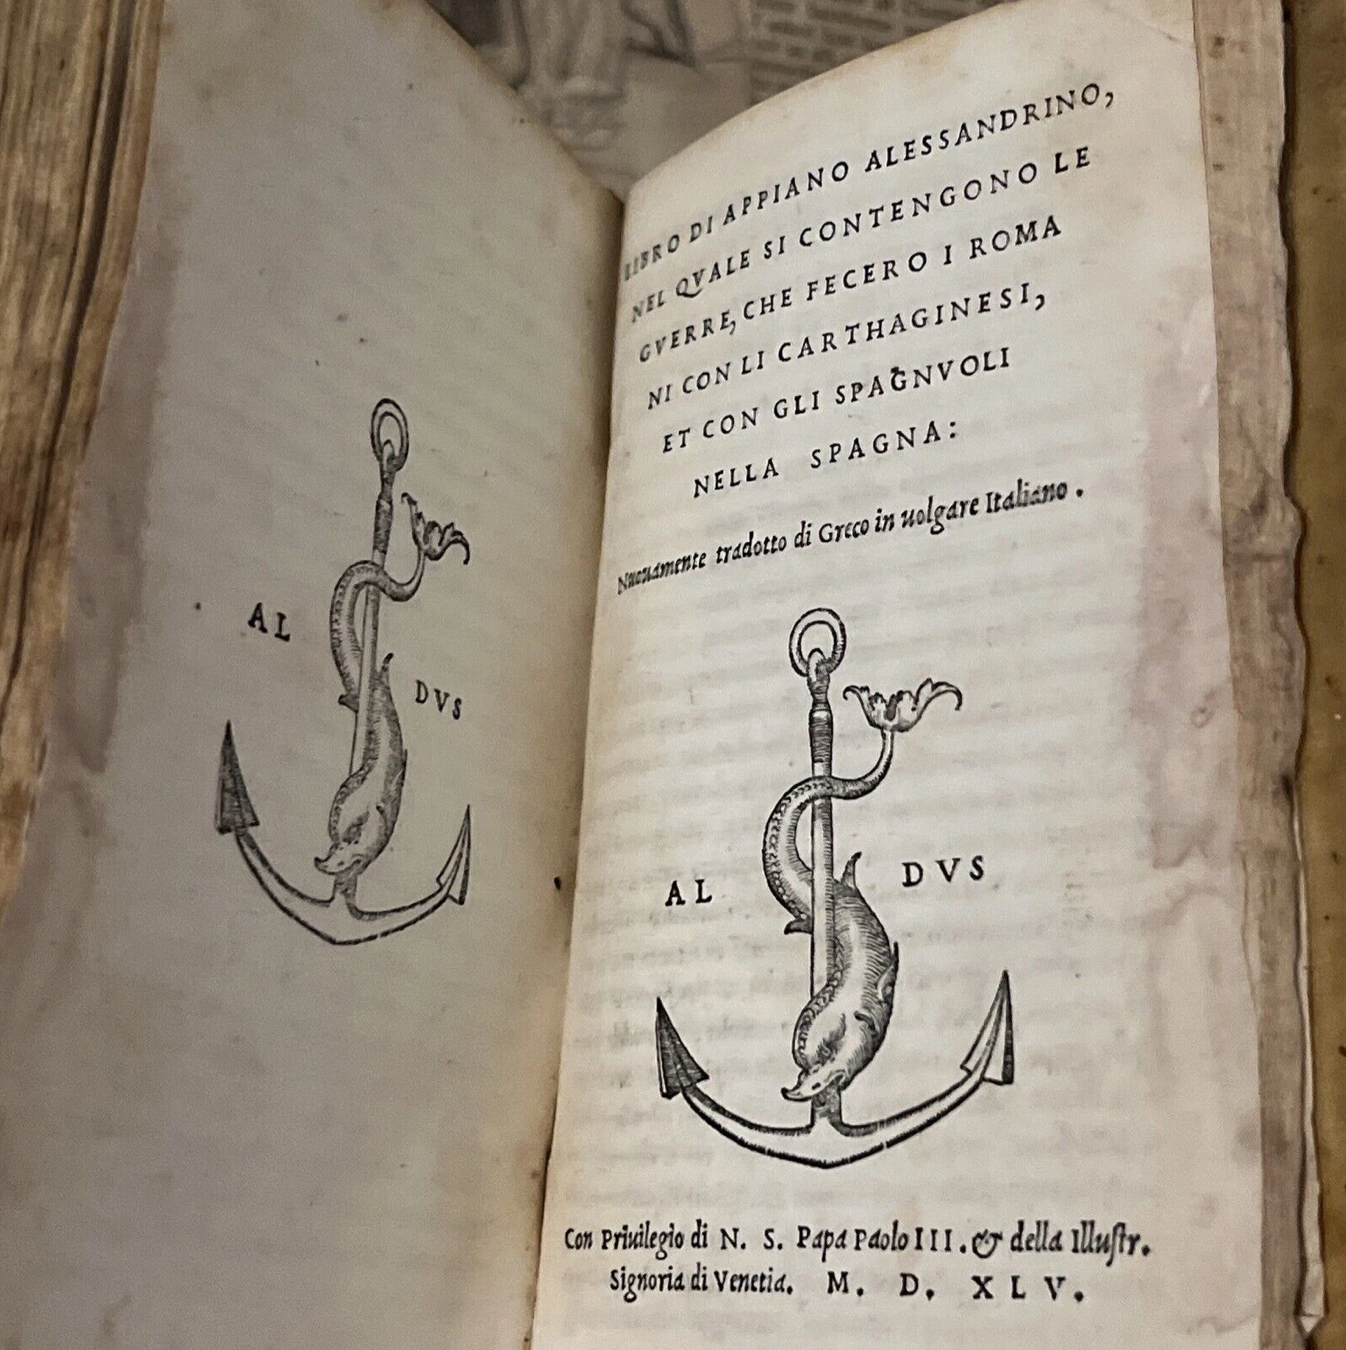 AL
DVS
LIBRO DI APPIANO ALESSANDRINO,
NEL QVALE SI CONTENGONO LE
GVERRE, CHE FECERO I ROMA
NI CON LI CARTHAGINESI,
ET CON GLI SPAGNVOLI
NELLA SPAGNA:
Nuouamente tradotto di Greco in uolgare Italiano.
AL DVS
Con Priuilegio di N. S. Papa Paolo III. & della Illuſtr.
Signoria di Venetia. M. D. XLV.